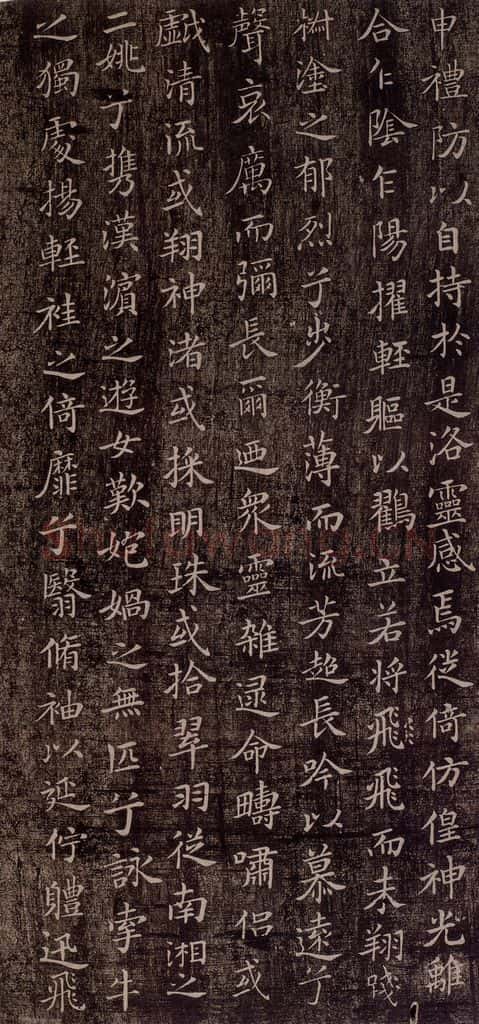 申禮防以自持於是洛靈感焉徙倚仿偟神光離
合乍陰乍陽擢輕軀以鶴立若将飛飛而未翔踐
椒塗之郁烈兮步衡薄而流芳超長吟以慕遠兮
聲哀厲而彌長爾迺眾靈雜遝命疇嘯侣或
戲清流或翔神渚或採明珠或拾翠羽從南湘之
二姚兮携漢濱之遊女歎匏媧之無匹兮詠牽牛
之獨處揚輕袿之倚靡兮翳脩袖以延佇體迅飛